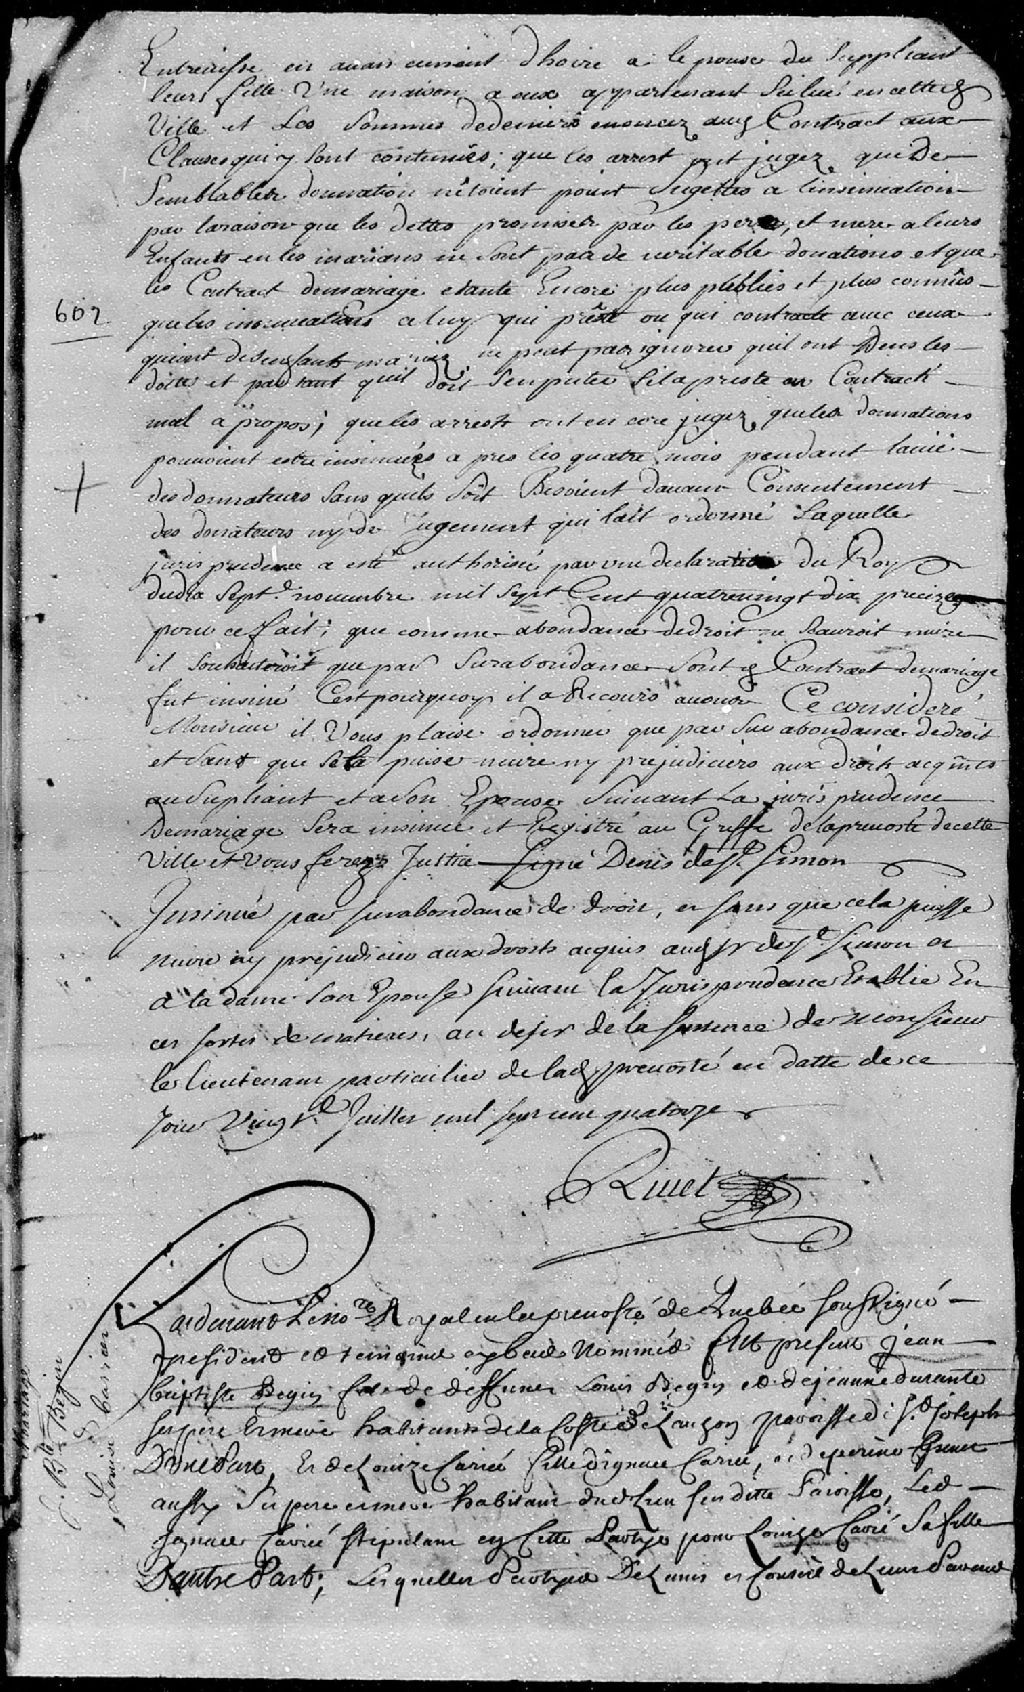 Entreviste en avancement d'hoire a le pouse du Suppliant
leurs fille Une maison a eux appartenant Scitué en cette
Ville et Les Sommes de deniers enoncez aud Contract aux
Clauses qui y sont contenues; que les arrest ont jugez que De
Semblables donnation nétoient point Sugettes a l'insinuation
par laraison que les dettes promises par les peres, et mere a leurs
Enfants en les marians ne sont pas de veritable donations et que
les Contract demariage etants Encore plus publies et plus connûs
que les insinuations celuy qui prête ou qui contracte avec ceux
qui ont des enfants mariez ne peut pas ignorer quil ont Deus les
doter et partant quil doit s'enputer Sil a presté ou Contracté
mal a propos; que les arrests ont encore jugez que les donnations
pouvoient estre insinuées a pres les quatre mois pendant lavie
des donnateurs Sans quils Soit Besoient daucun Consentement
des donateurs ny de Jugement qui lait ordonné Laquelle
jurisprudence a esté authorisée par une declaration du Roy
dud Sept. novembre mil Sept Cent quatrevingt dix precize
pour ce fait; que comme abondance dedroit ne Sauroit nuire
il Souhaiteroit que par Surabondance Sond Contract demariage
fut insiné C'est pourquoy il a Recours avous Ce consideré
Monsieur il Vous plaise ordonner que par Sur abondance de droit
et Sans que Cela puise nuire ny prejudiciers aux droits acquits
au Supliant et a Son Epouse Suivant La jurisprudence
Demariage Sera insinué et Registré au Greffe de la prevosté de cette
Ville et Vous ferez Justice Signé Denis de St. Simon
Insinué par surabondance de droit, et sans que cela puisse
nuire ny prejudicier aux droits acquis aud Sr de St Simon et
a la dame son Epouse suivant la Jurisprudence Establie En
ces sortes de matieres, au desir de la sentence de Monsieur
le Lieutenant particulier de lad prevosté en datte de ce
Jour Vingt Juillet mil sept cent quatorze
Rivet
602
Mariage
J. Bte Begin
Et
Louise Carrier
Pardevant Le No.re Royal en la prevosté de Quebec soussigné
resident et temoins cybas Nommés fut present Jean
Baptiste Begin fils de deffunct Louis Begin et de jeanne durante
ses pere et mere habitants de la Coste de Lauzon paroisse de St. Joseph
D'Une Part, Et de Louize Carié fille d'ignace Carié, et de perrine Grenet
aussy Ses pere et mere habitant dud Lieu susditte Paroisse, Led
Ignace Carié stipulant en Cette Partye pour Louize Carié Sa fille
D'autre Part; Lesquelles Partyes De L'avis et Conseil de Leurs Parens